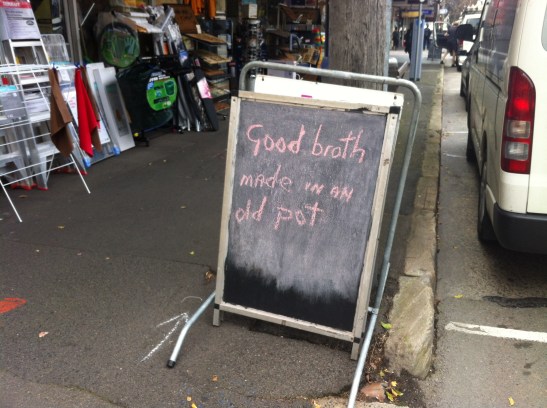 Good broth
MADE IN AN
old pot